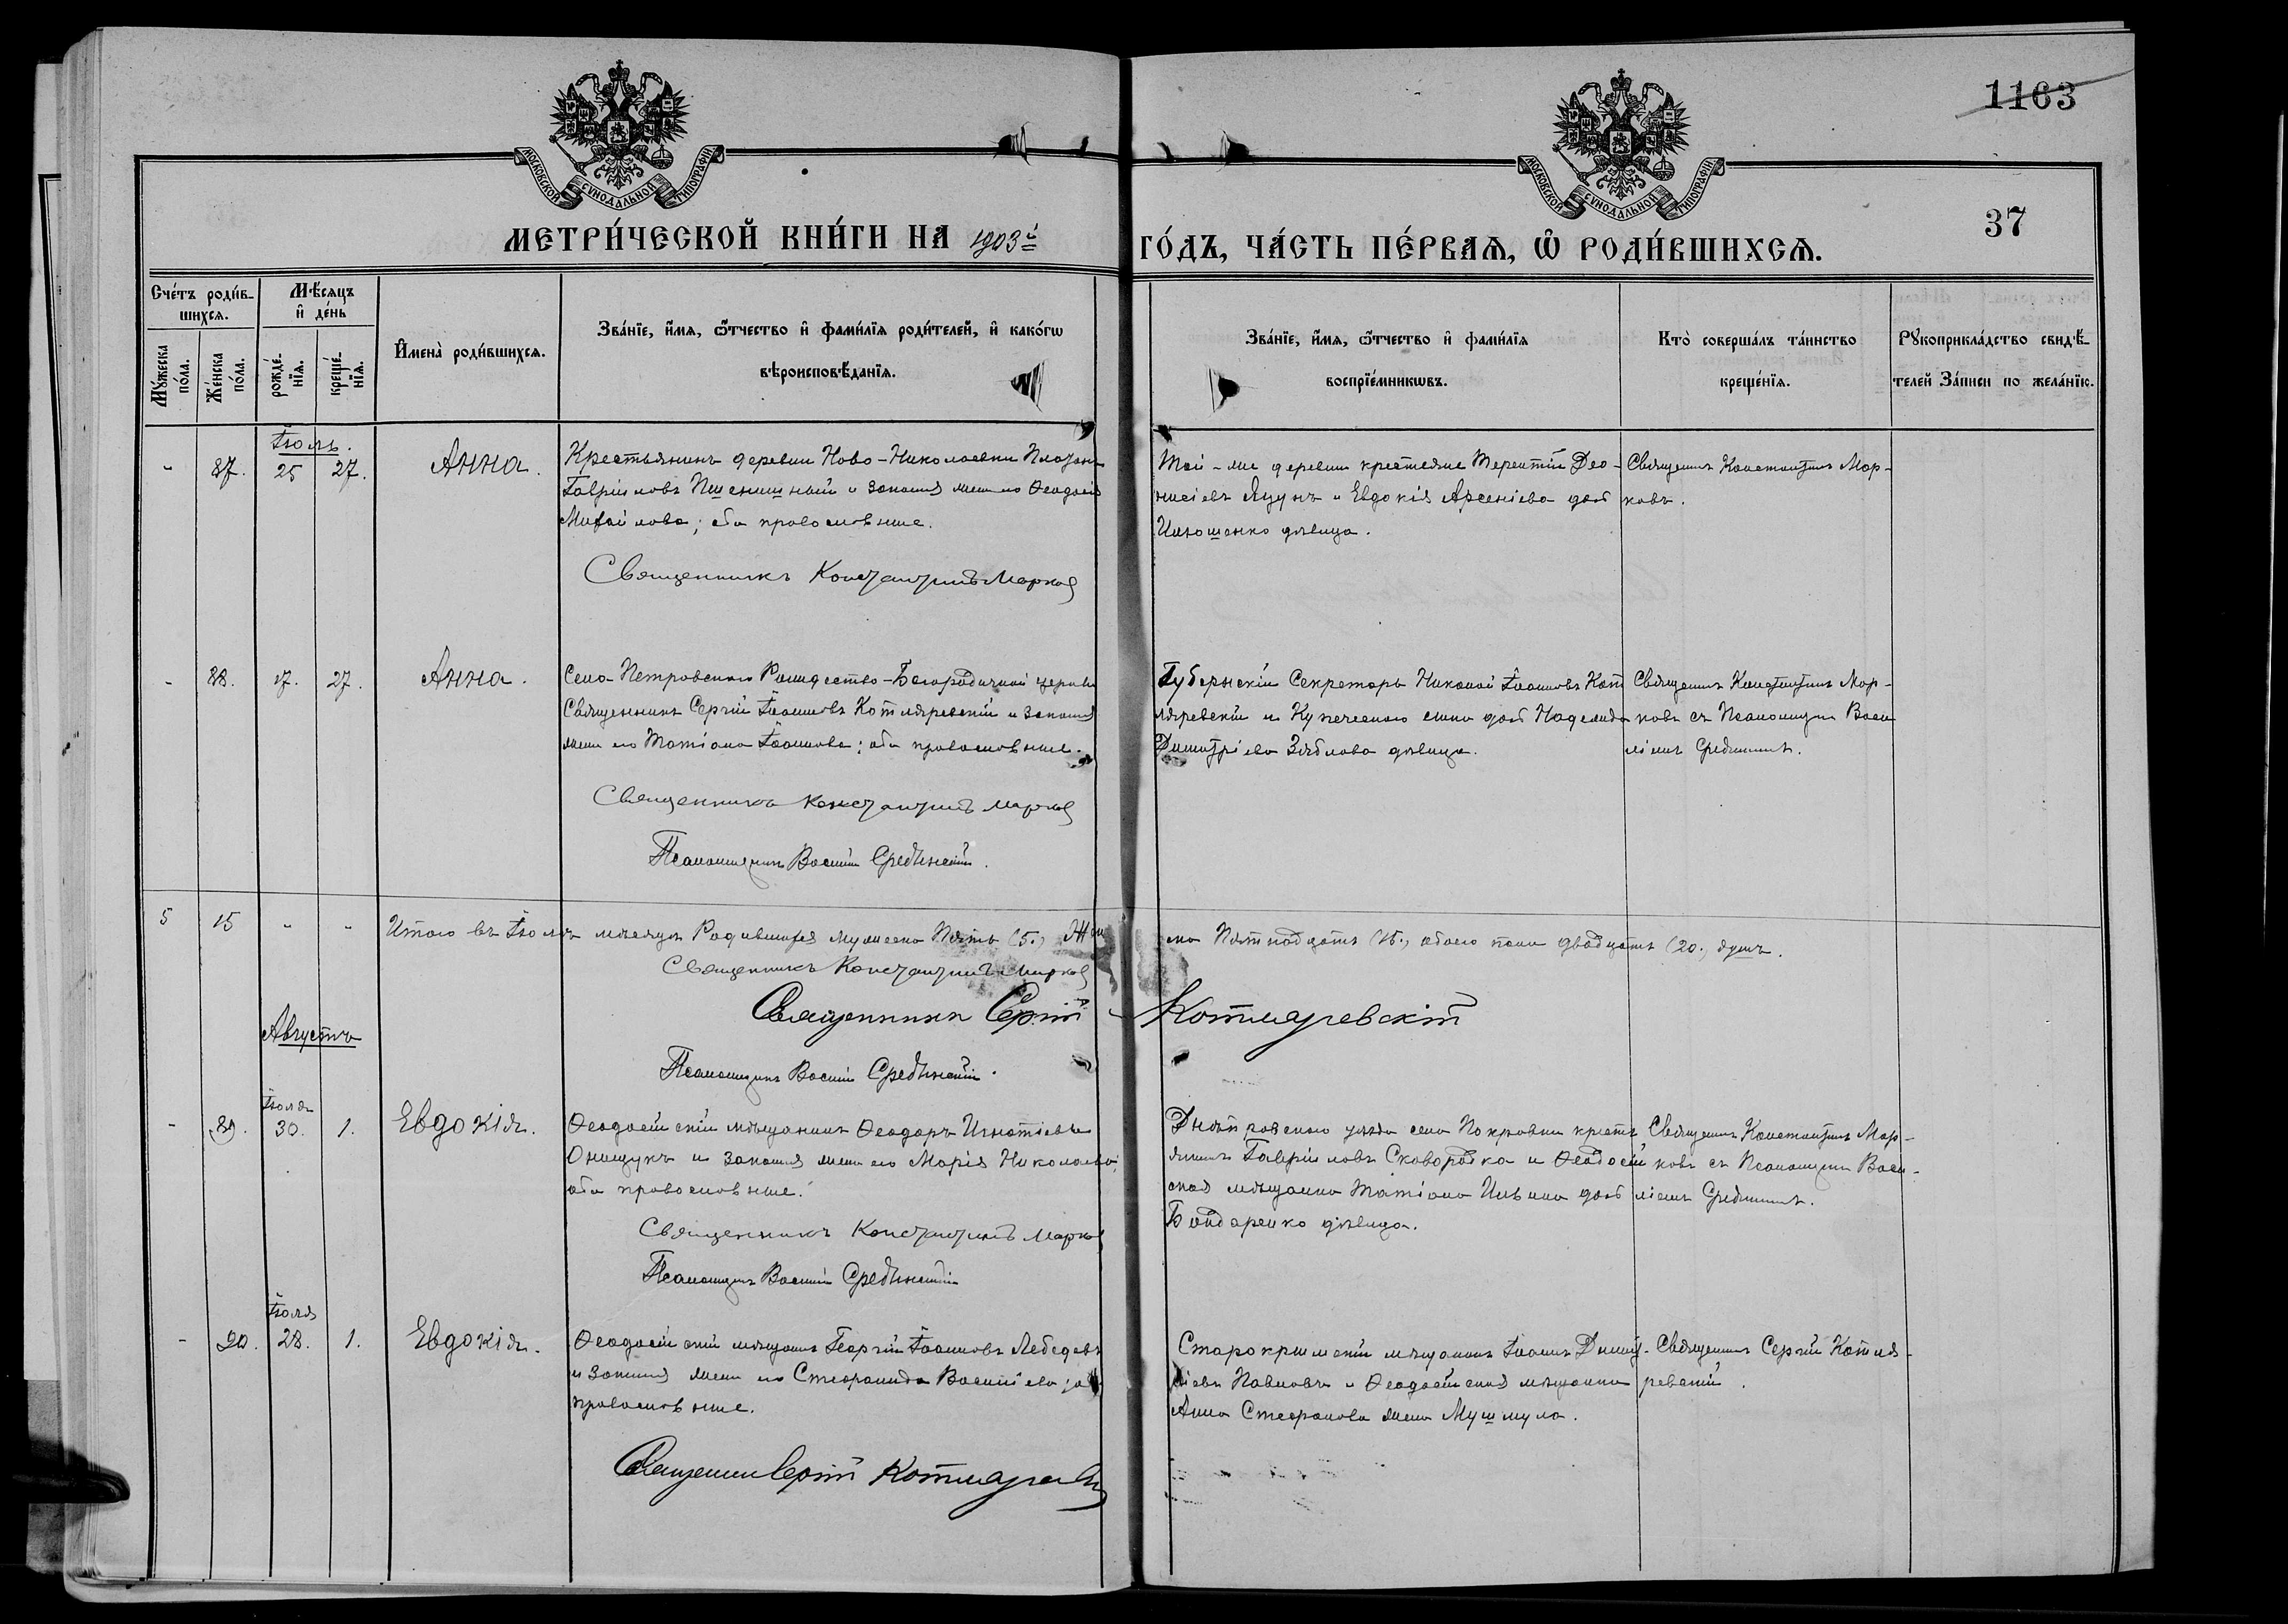 МОСКОВСКОЙ СѴНОДАЛЬНОЙ ТИПОГРАФІИ
МОСКОВСКОЙ СѴНОДАЛЬНОЙ ТИПОГРАФІИ
1163
37
МЕТРИ́ЧЕСКОЙ КНИ́ГИ НА 1903й ГО́ДЪ, ЧА́СТЬ ПЕ́РВАЯ, Ѡ҆ РОДИ́ВШИХСЯ.
Сче́тъ роди́в-
шихся.
Мѣ́сяцъ
и҆ де́нь
Му́жеска
по́ла.
Же́нска
по́ла.
рожде́-
нїя.
креще́-
нїя.
И҆мена̀ роди́вшихся.
Зва́нїе, и҆́мя, ѻ҆́тчество и҆ фами́лїя роди́телей, и҆ како́гѡ
вѣроисповѣ́данїя.
Зва́нїе, и҆́мя, ѻ҆́тчество и҆ фами́лїя
воспрїе́мникѡвъ.
Кто̀ соверша́лъ та́инство
креще́нїя.
Рꙋкоприкла́дство свидѣ́-
телей За́писи по жела́нїю.
Іюль.
- 87. 25 27. Анна.
Крестьянинъ деревни Ново-Николаевки Платонъ
Гавріиловъ Пшеничный и законная жена его Ѳеодосія
Михаилова; оба православные.
Священникъ Константинъ Марковъ
Той-же деревни крестьяне Терентій Діо-
нисіевъ Яцунъ и Евдокія Арсеніева дочь
Ильюшенко дѣвица.
Священникъ Константинъ Мар-
ковъ.
- 88. 17. 27. Анна.
Села Петровскаго Рождество-Богородичной церкви
Священникъ Сергій Іоанновъ Котляревскій и законная
жена его Татіана Іоаннова; оба православные.
Священникъ Константинъ Марковъ
Псаломщикъ Василій Срединскій.
Губернскій Секретарь Николай Іоанновъ Кот
ляревскій и Купеческаго сына дочь Надежда
Димитріева Зяблова дѣвица.
Священникъ Константинъ Мар-
ковъ съ Псаломщикомъ Васи
ліемъ Срединскимъ.
5 15 - - Итого въ Іюлѣ мѣсяцѣ Родившихся мужеска Пять (5.) Жен
ска Пятнадцать (15.) обоего пола двадцать (20.) душъ.
Священникъ Константинъ Марковъ
Священникъ Сергій Котляревскій
Псаломщикъ Василій Срединскій.
Августъ
Іюля
- 89. 30. 1. Евдокія.
Ѳеодосійскій мѣщанинъ Ѳеодоръ Игнатіевъ
Онищукъ и законная жена его Марія Николаева;
оба православные.
Священникъ Константинъ Марковъ
Псаломщикъ Василій Срединскій
Днѣпровскаго уѣзда села Покровки крестья
нинъ Гавріиловъ Сковородка и Ѳеодосій
ская мѣщанка Татіана Ильина дочь
Бондаренко дѣвица.
Священникъ Константинъ Мар-
ковъ съ Псаломщикомъ Васи-
ліемъ Срединскимъ.
Іюля
- 90. 28. 1. Евдокія.
Ѳеодосійскій мѣщанинъ Георгій Іоанновъ Лебедевъ
и законная жена его Стефанида Василіева; оба
православные.
Священникъ Сергій Котляревскій
Старокрымскій мѣщанинъ Іоаннъ Димит-
ріевъ Павловъ и Ѳеодосійская мѣщанка
Анна Стефанова жена Мушмула.
Священникъ Сергій Котля-
ревскій.